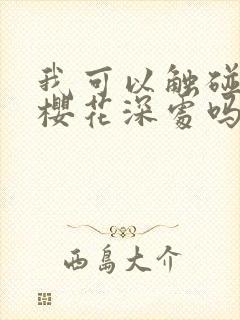 我可以触碰
樱花深处吗
西岛大介